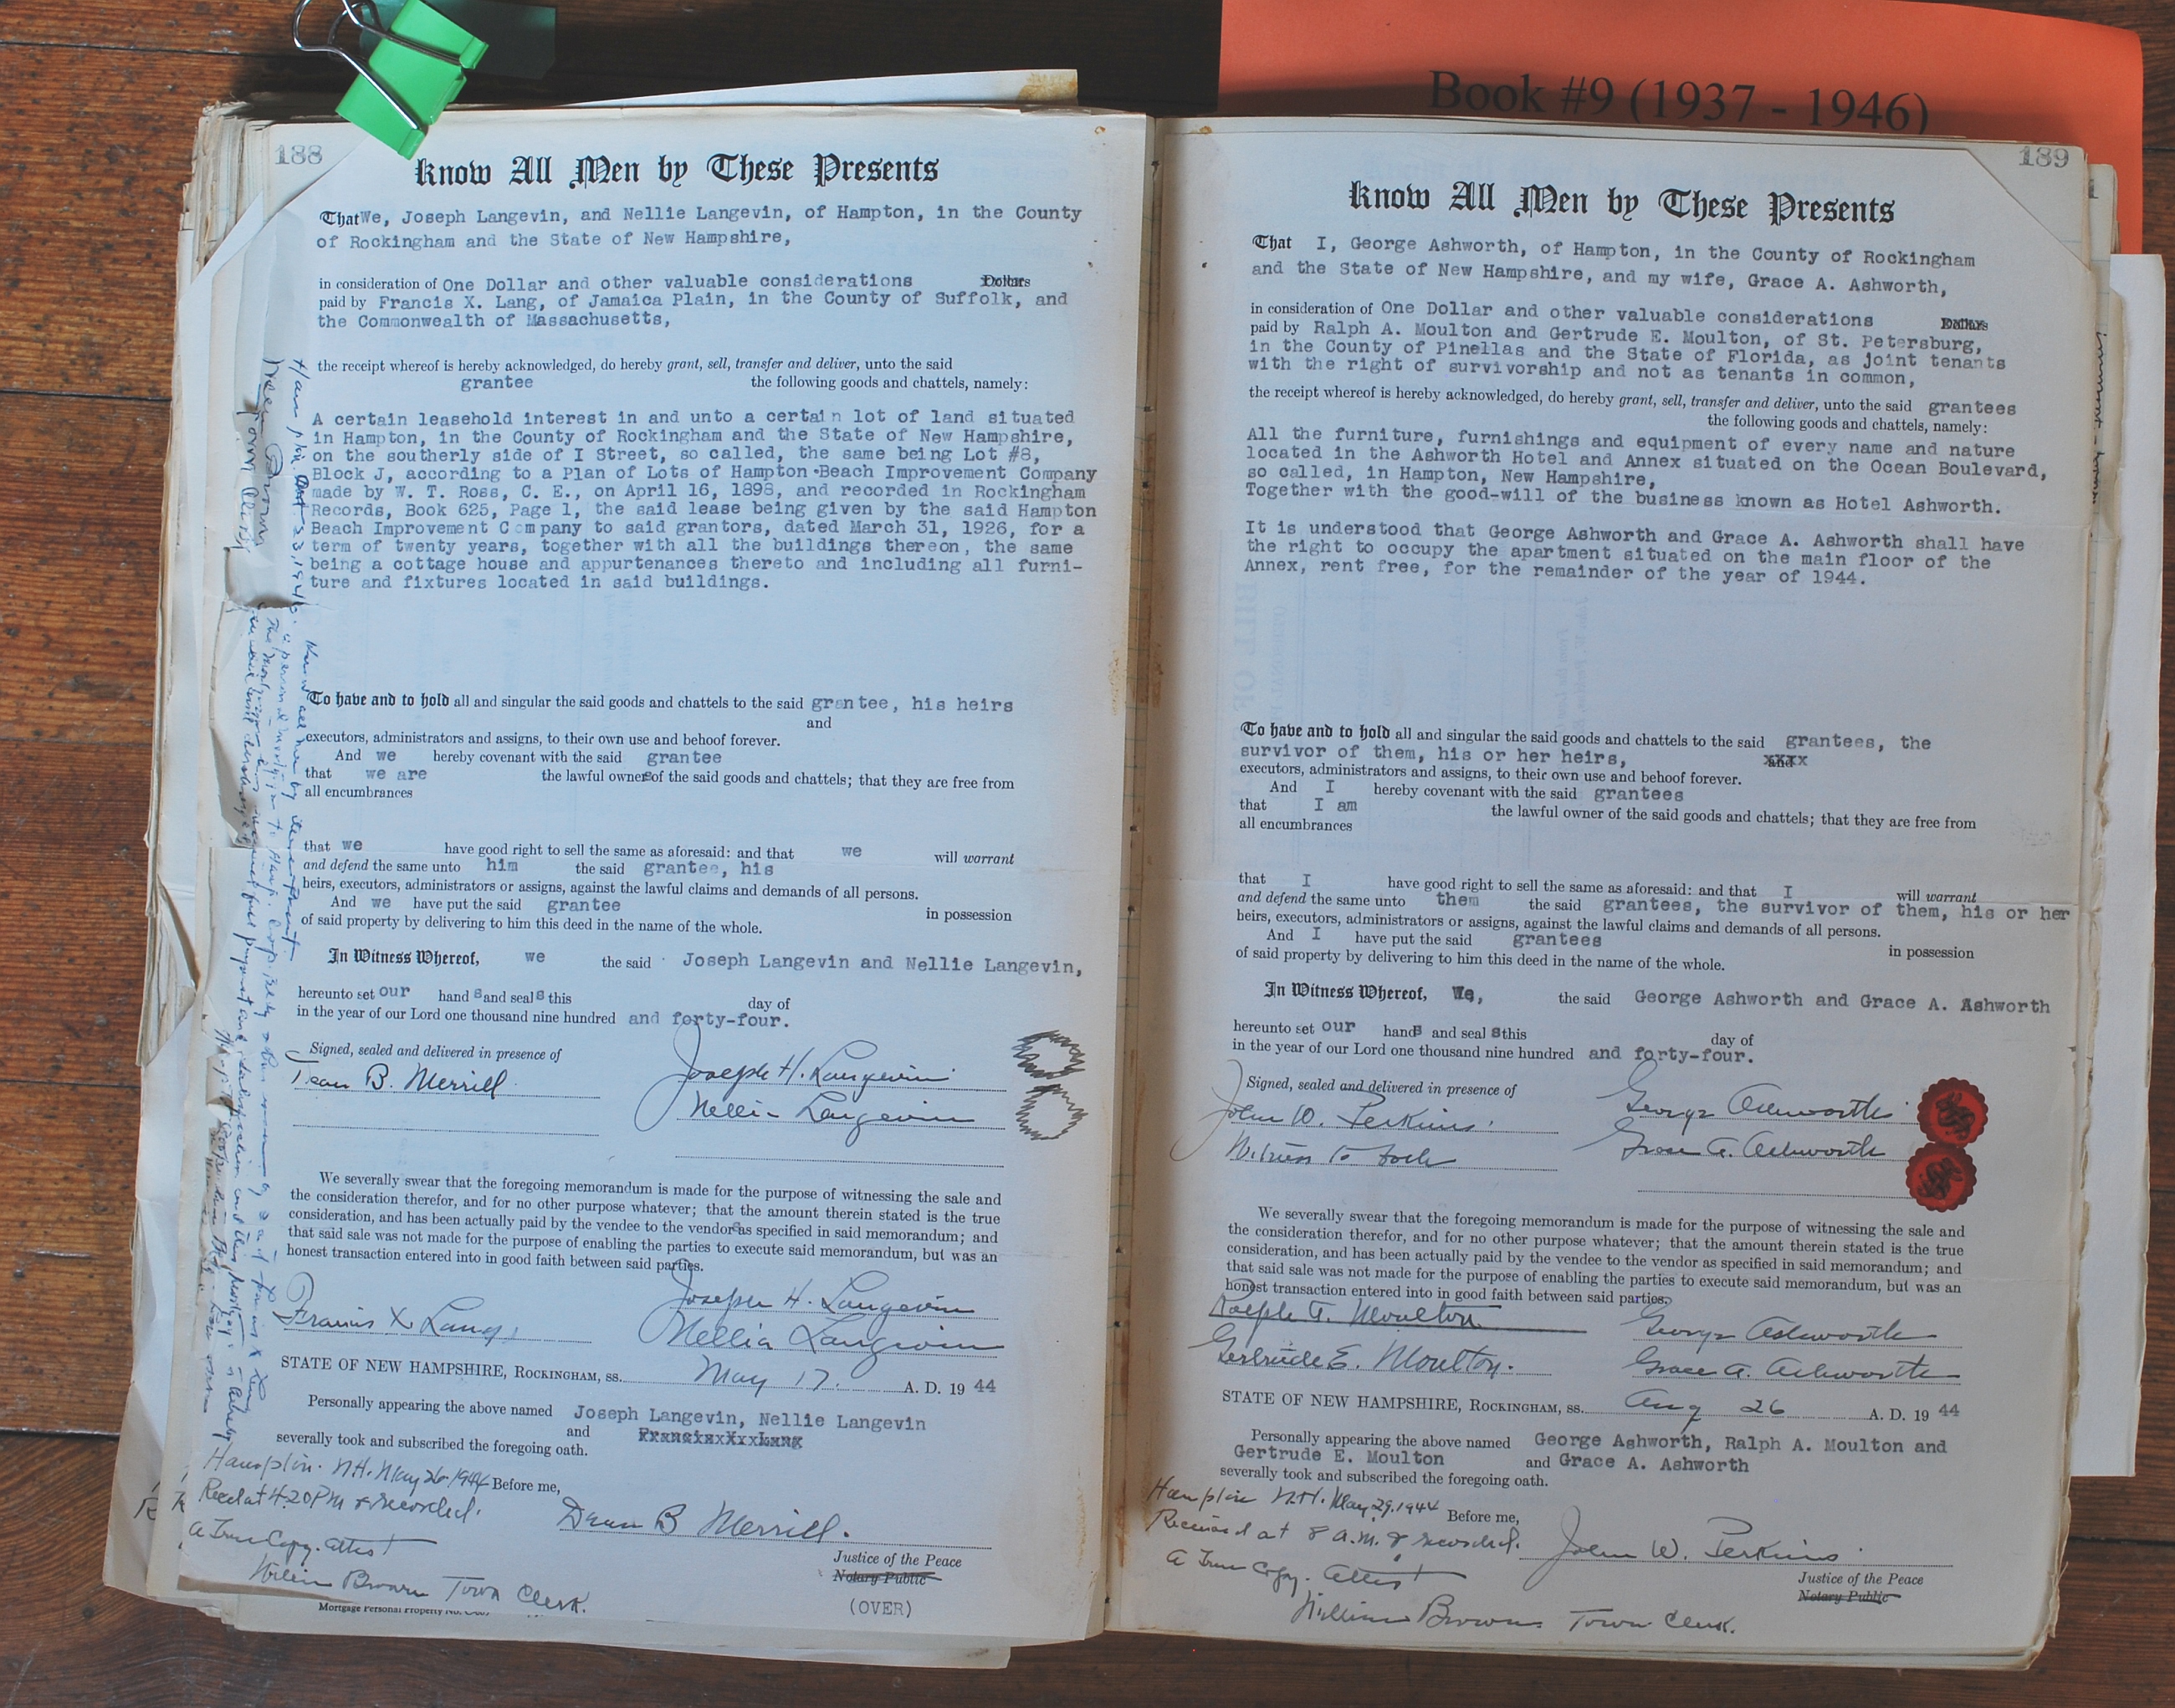 Book #9 (1937 - 1946)
188
Know All Men by These Presents
That We, Joseph Langevin, and Nellie Langevin, of Hampton, in the County
of Rockingham and the State of New Hampshire,
in consideration of One Dollar and other valuable considerations Dollars
paid by Francis X. Lang, of Jamaica Plain, in the County of Suffolk, and
the Commonwealth of Massachusetts,
the receipt whereof is hereby acknowledged, do hereby grant, sell, transfer and deliver, unto the said
grantee the following goods and chattels, namely:
A certain leasehold interest in and unto a certain lot of land situated
in Hampton, in the County of Rockingham and the State of New Hampshire,
on the southerly side of I Street, so called, the same being Lot #8,
Block J, according to a Plan of Lots of Hampton Beach Improvement Company
made by W. T. Ross, C. E., on April 16, 1898, and recorded in Rockingham
Records, Book 625, Page 1, the said lease being given by the said Hampton
Beach Improvement Company to said grantors, dated March 31, 1926, for a
term of twenty years, together with all the buildings thereon, the same
being a cottage house and appurtenances thereto and including all furni-
ture and fixtures located in said buildings.
To have and to hold all and singular the said goods and chattels to the said grantee, his heirs
and
executors, administrators and assigns, to their own use and behoof forever.
And we hereby covenant with the said grantee
that we are the lawful owners of the said goods and chattels; that they are free from
all encumbrances
that we have good right to sell the same as aforesaid: and that we will warrant
and defend the same unto him the said grantee, his
heirs, executors, administrators or assigns, against the lawful claims and demands of all persons.
And we have put the said grantee in possession
of said property by delivering to him this deed in the name of the whole.
In Witness Whereof, we the said Joseph Langevin and Nellie Langevin,
hereunto set our hand s and seal s this day of
in the year of our Lord one thousand nine hundred and forty-four.
Signed, sealed and delivered in presence of
Dean B. Merrill Joseph H. Langevin
Nellie Langevin
We severally swear that the foregoing memorandum is made for the purpose of witnessing the sale and
the consideration therefor, and for no other purpose whatever; that the amount therein stated is the true
consideration, and has been actually paid by the vendee to the vendors as specified in said memorandum; and
that said sale was not made for the purpose of enabling the parties to execute said memorandum, but was an
honest transaction entered into in good faith between said parties.
Joseph H. Langevin
Francis X Lang Nellie Langevin
STATE OF NEW HAMPSHIRE, Rockingham, ss. May 17. A. D. 19 44
Personally appearing the above named Joseph Langevin, Nellie Langevin
and Francis X. Lang
severally took and subscribed the foregoing oath.
Hampton. N.H. May 26-1944 Before me,
Recd at 4.20 PM & recorded.
Dean B Merrill.
A True Copy. attest
Justice of the Peace
Notary Public
William Brown Town Clerk.
(OVER)
Mortgage Personal Property No.
189
Know All Men by These Presents
That I, George Ashworth, of Hampton, in the County of Rockingham
and the State of New Hampshire, and my wife, Grace A. Ashworth,
in consideration of One Dollar and other valuable considerations Dollars
paid by Ralph A. Moulton and Gertrude E. Moulton, of St. Petersburg,
in the County of Pinellas and the State of Florida, as joint tenants
with the right of survivorship and not as tenants in common,
the receipt whereof is hereby acknowledged, do hereby grant, sell, transfer and deliver, unto the said grantees
the following goods and chattels, namely:
All the furniture, furnishings and equipment of every name and nature
located in the Ashworth Hotel and Annex situated on the Ocean Boulevard,
so called, in Hampton, New Hampshire,
Together with the good-will of the business known as Hotel Ashworth.
It is understood that George Ashworth and Grace A. Ashworth shall have
the right to occupy the apartment situated on the main floor of the
Annex, rent free, for the remainder of the year of 1944.
To have and to hold all and singular the said goods and chattels to the said grantees, the
survivor of them, his or her heirs, and
executors, administrators and assigns, to their own use and behoof forever.
And I hereby covenant with the said grantees
that I am the lawful owner of the said goods and chattels; that they are free from
all encumbrances
that I have good right to sell the same as aforesaid: and that I will warrant
and defend the same unto them the said grantees, the survivor of them, his or her
heirs, executors, administrators or assigns, against the lawful claims and demands of all persons.
And I have put the said grantees in possession
of said property by delivering to him this deed in the name of the whole.
In Witness Whereof, We, the said George Ashworth and Grace A. Ashworth
hereunto set our hands and seal s this day of
in the year of our Lord one thousand nine hundred and forty-four.
Signed, sealed and delivered in presence of
John W. Perkins. George Ashworth
Witness to both Grace A. Ashworth
We severally swear that the foregoing memorandum is made for the purpose of witnessing the sale and
the consideration therefor, and for no other purpose whatever; that the amount therein stated is the true
consideration, and has been actually paid by the vendee to the vendor as specified in said memorandum; and
that said sale was not made for the purpose of enabling the parties to execute said memorandum, but was an
honest transaction entered into in good faith between said parties.
Ralph A. Moulton George Ashworth
Gertrude E. Moulton. Grace A. Ashworth
STATE OF NEW HAMPSHIRE, Rockingham, ss. Aug 26 A. D. 19 44
Personally appearing the above named George Ashworth, Ralph A. Moulton and
Gertrude E. Moulton and Grace A. Ashworth
severally took and subscribed the foregoing oath.
Hampton N.H. May 29. 1944 Before me,
Received at 8 a.m. & recorded.
John W. Perkins
A True Copy. Attest
Justice of the Peace
Notary Public
William Brown Town Clerk.